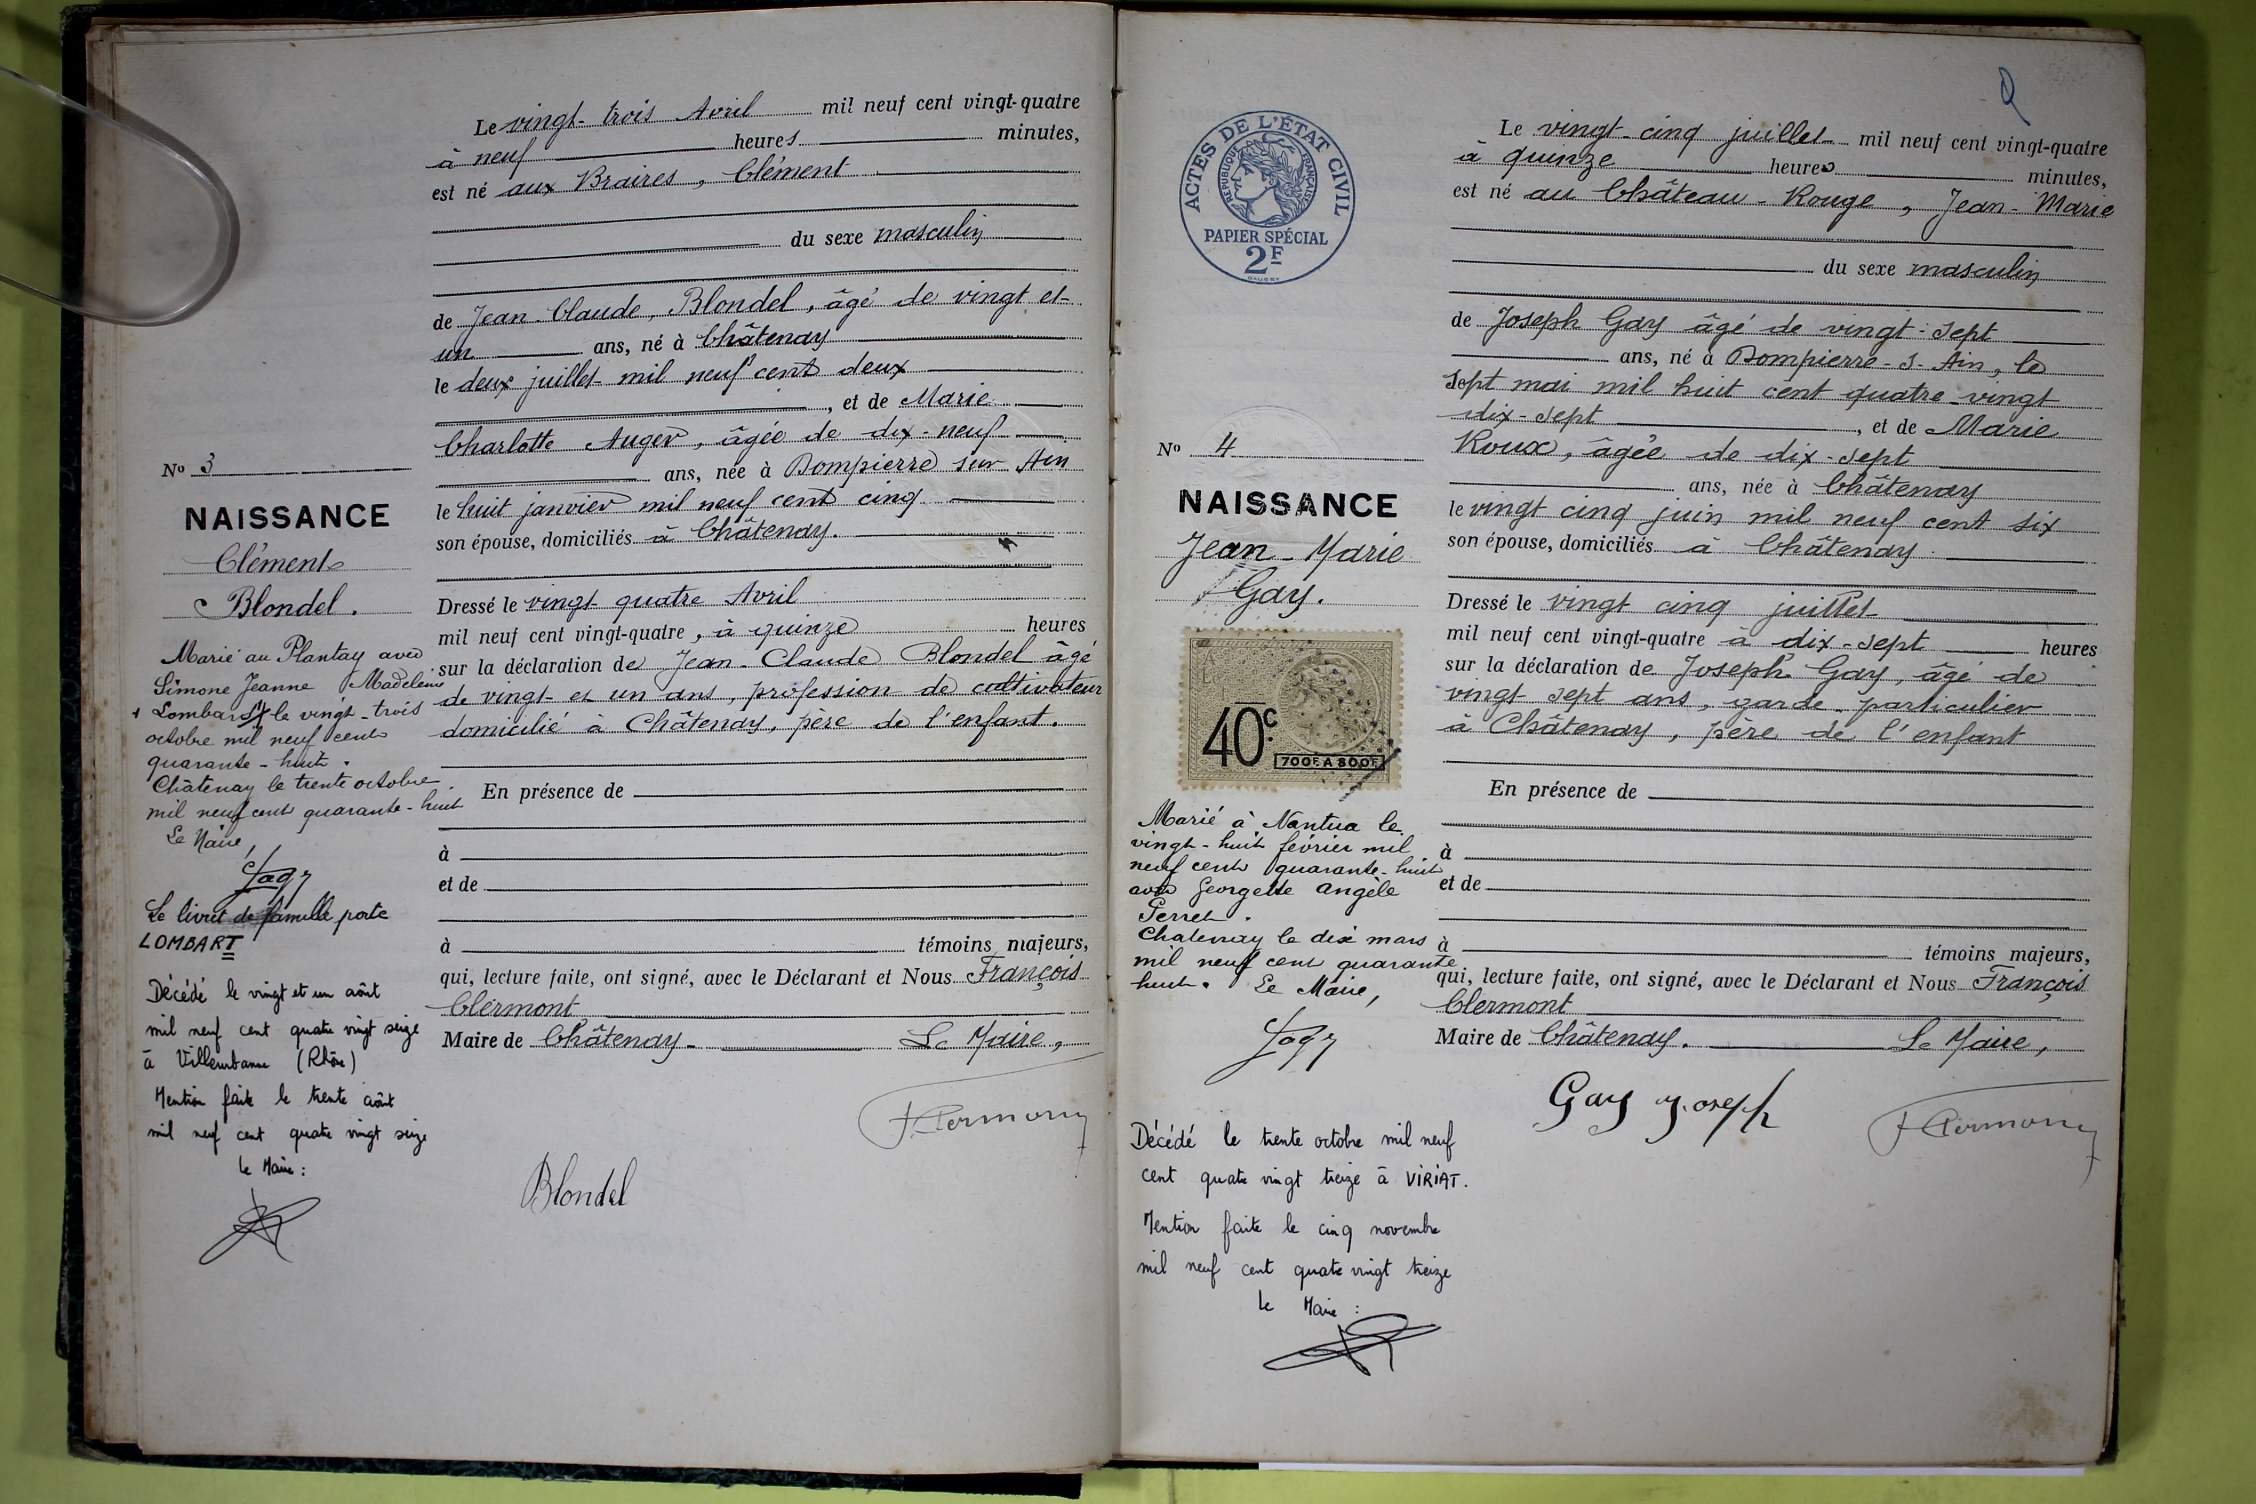 Le vingt-trois Avril mil neuf cent vingt-quatre
à neuf heures minutes,
est né aux Braires, Clément
du sexe masculin
de Jean-Claude, Blondel, âgé de vingt et-
un ans, né à Châtenay
le deux juillet mil neuf cent deux
, et de Marie
Charlotte Auger, âgée de dix-neuf
ans, née à Dompierre sur Ain
le huit janvier mil neuf cent cinq
son épouse, domiciliés à Châtenay.
Dressé le vingt quatre Avril
mil neuf cent vingt-quatre, à quinze heures
sur la déclaration de Jean-Claude Blondel âgé
de vingt et un ans, profession de cultivateur
domicilié à Châtenay, père de l'enfant.
En présence de
à
et de
à témoins majeurs,
qui, lecture faite, ont signé, avec le Déclarant et Nous François
Clermont
Maire de Châtenay- Le Maire,
F. Clermont
Blondel
No 3
NAISSANCE
Clément
Blondel.
Marié au Plantay avec
Simone Jeanne Madeleine
Lombard le vingt-trois
octobre mil neuf cent
quarante-huit.
Châtenay le trente octobre
mil neuf cent quarante-huit
Le Maire,
Le livret de famille porte
LOMBART
Décédé le vingt et un août
mil neuf cent quatre vingt seize
à Villeurbanne (Rhône)
Mention faite le trente août
mil neuf cent quatre vingt seize
le Maire :
ACTES DE L'ÉTAT CIVIL
RÉPUBLIQUE FRANÇAISE
PAPIER SPÉCIAL
2F
No 4
NAISSANCE
Jean-Marie
Gay.
40c
700F. A 800F.
Marié à Nantua le
vingt-huit février mil
neuf cent quarante-huit
avec Georgette Angèle
Perret.
Chatenay le dix mars
mil neuf cent quarante
huit. Le Maire,
Décédé le trente octobre mil neuf
cent quatre vingt treize à VIRIAT.
Mention faite le cinq novembre
mil neuf cent quatre vingt treize
le Maire :
Le vingt-cinq juillet mil neuf cent vingt-quatre
à quinze heures minutes,
est né au Château-Rouge, Jean-Marie
du sexe masculin
de Joseph Gay âgé de vingt-sept
ans, né à Dompierre-s-Ain, le
sept mai mil huit cent quatre-vingt
dix-sept, et de Marie
Roux, âgée de dix-sept
ans, née à Châtenay
le vingt cinq juin mil neuf cent six
son épouse, domiciliés à Châtenay
Dressé le vingt cinq juillet
mil neuf cent vingt-quatre à dix-sept heures
sur la déclaration de Joseph Gay, âgé de
vingt sept ans, garde-particulier
à Châtenay, père de l'enfant
En présence de
à
et de
à témoins majeurs,
qui, lecture faite, ont signé, avec le Déclarant et Nous François
Clermont
Maire de Châtenay. Le Maire,
Gay Joseph
F Clermont